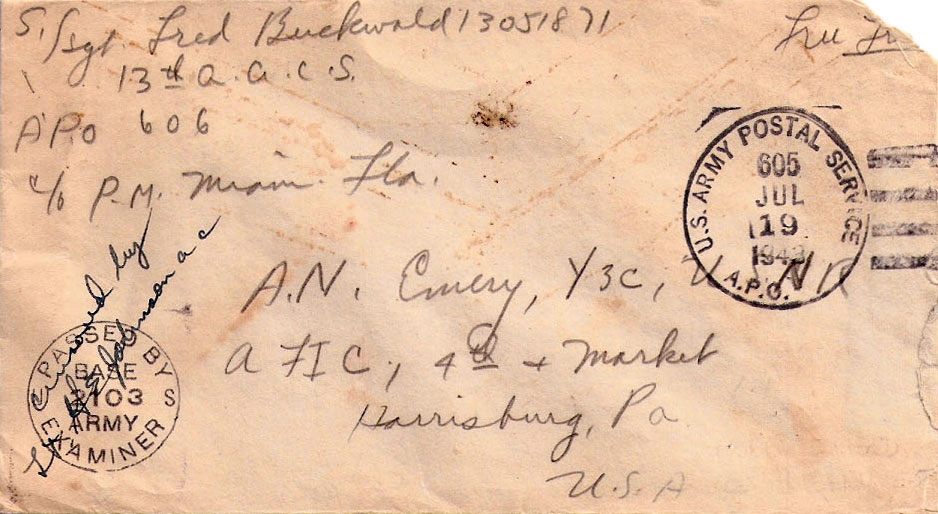 S/Sgt. Fred Buckwald 13051871
13th A.A.C.S.
APO 606
c/o P.M. Miami Fla.
Free
U.S. ARMY POSTAL SERVICE
605
JUL
19
1943
A.P.O.
A.N. Emery, Y3c, USNR
AFIC, 4th + Market
Harrisburg, Pa
U.S.A
Censored by
Lt. Johnson a c
PASSED BY
BASE
2103
ARMY
EXAMINER